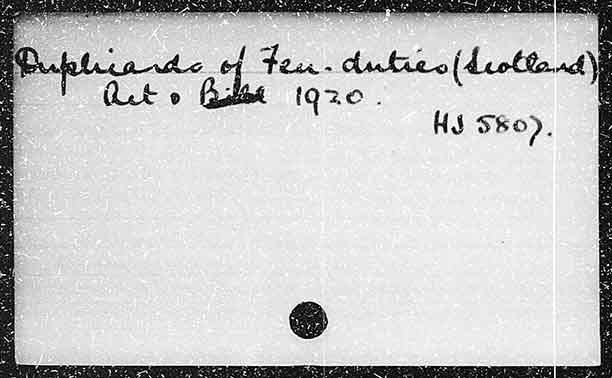 Duplicands of Feu-duties (Scotland)
Act & Bill 1920.
HJ 5807.